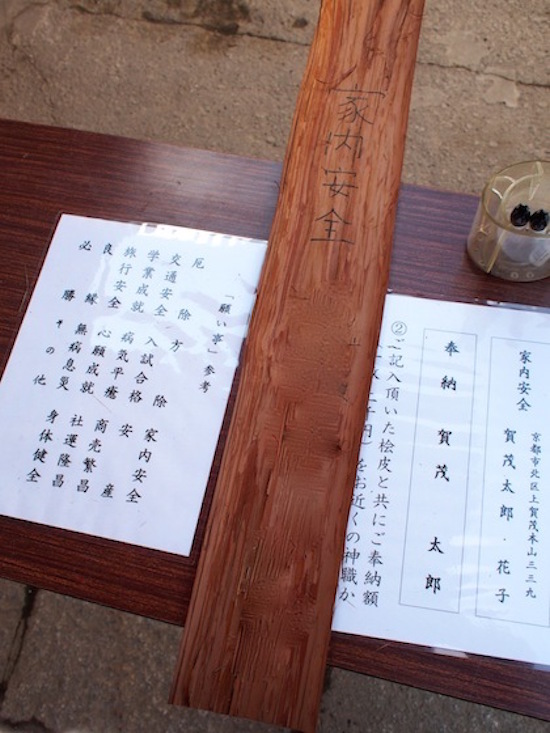 家内安全
「願い事」参考
厄除 方除 家内安全
交通安全 入試合格 安産
学業成就 病気平癒 商売繁昌
旅行安全 心願成就 社運隆昌
良縁 無病息災 身体健全
必勝 その他
京都市北区上賀茂本山三三九
家内安全 賀茂太郎・花子
奉納 賀茂 太郎
②ご記入頂いた桧皮と共にご奉納額
千円 をお近くの神職か